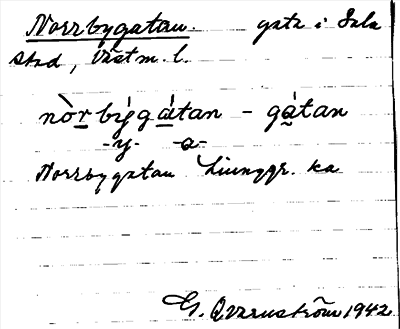 Norrbygatan. gata i Sala
stad, Västm. l.
nòr býgátan - gátan
-y- -a-
Norrbygatan Ljunggr. ka
G. Qvarnström 1942